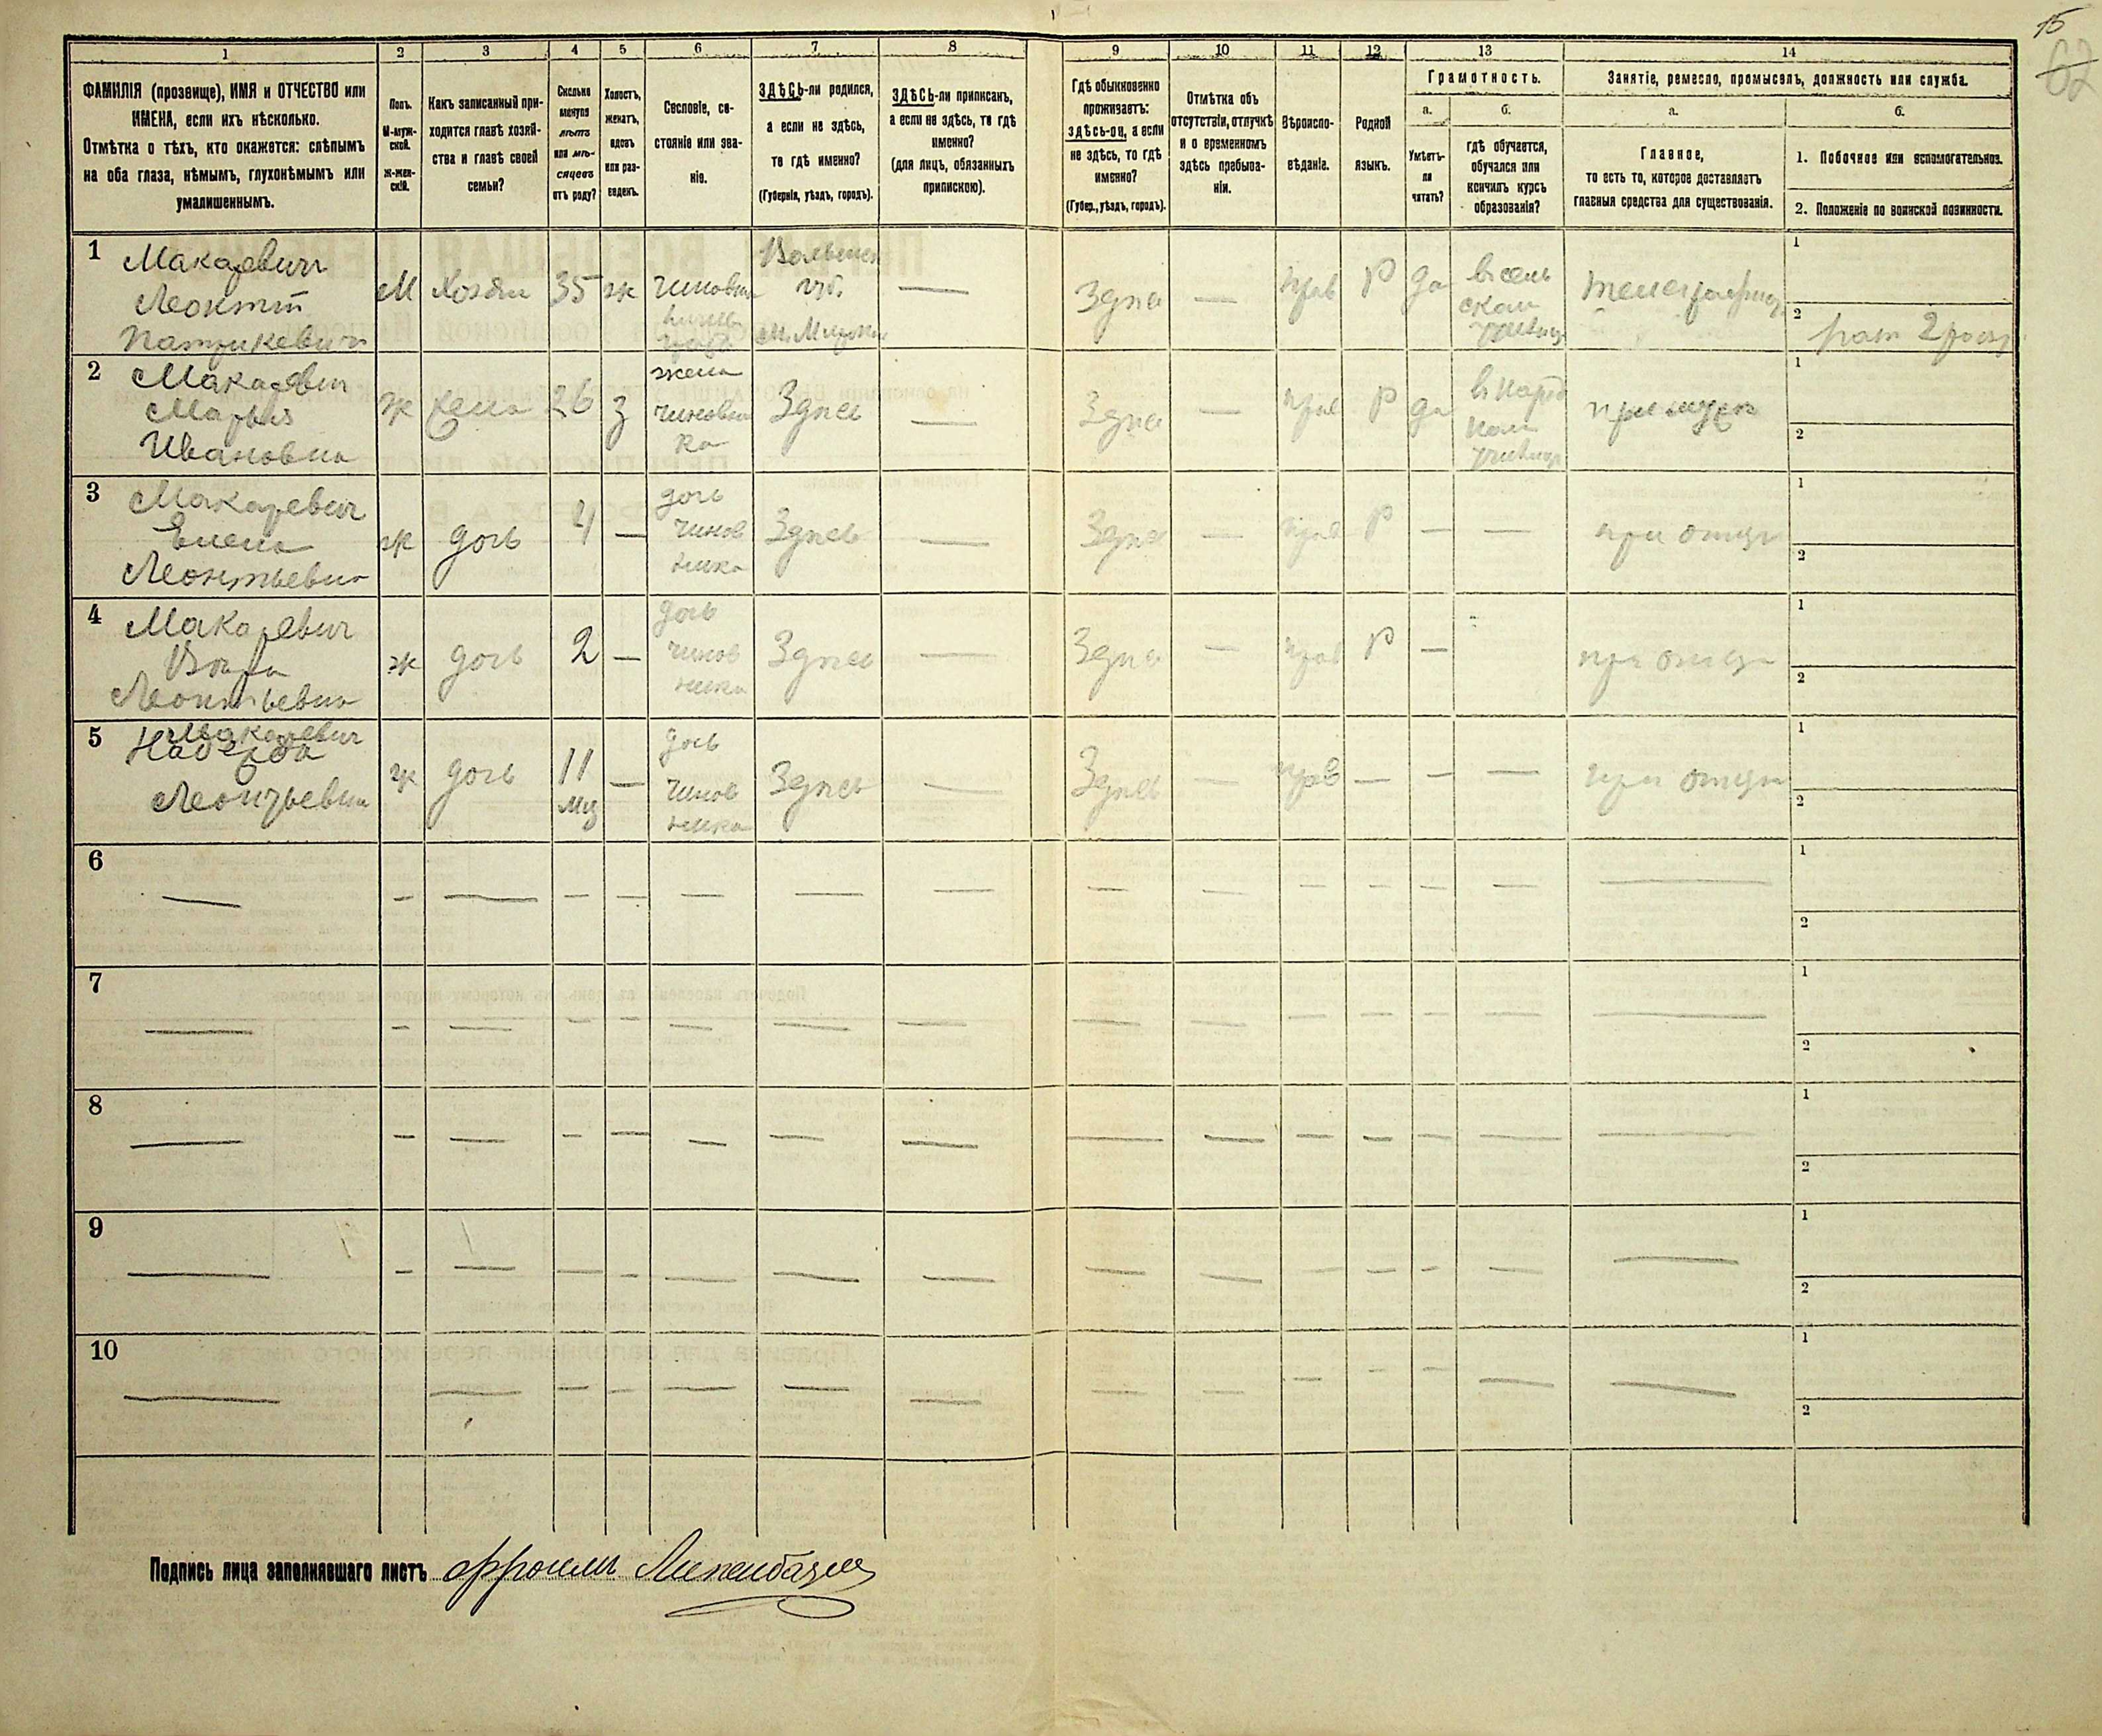 15
62
1 2 3 4 5 6 7 8 9 10 11 12 13 14
ФАМИЛІЯ (прозвище), ИМЯ и ОТЧЕСТВО или
ИМЕНА, если ихъ нѣсколько.
Отмѣтка о тѣхъ, кто окажется: слѣпымъ
на оба глаза, нѣмымъ, глухонѣмымъ или
умалишеннымъ.
Полъ.
М-муж-
ской.
Ж-жен-
скій.
Какъ записанный при-
ходится главѣ хозяй-
ства и главѣ своей
семьи?
Сколько
минуло
лѣтъ
или мѣ-
сяцевъ
отъ роду?
Холостъ,
женатъ,
вдовъ
или раз-
веденъ.
Сословіе, со-
стояніе или зва-
ніе.
ЗДѢСЬ-ли родился,
а если не здѣсь,
то гдѣ именно?
(Губернія, уѣздъ, городъ).
ЗДѢСЬ-ли приписанъ,
а если не здѣсь, то гдѣ
именно?
(для лицъ, обязанныхъ
припискою).
Гдѣ обыкновенно
проживаетъ:
здѣсь-ли, а если
не здѣсь, то гдѣ
именно?
(Губер., уѣздъ, городъ).
Отмѣтка объ
отсутствіи, отлучкѣ
и о временномъ
здѣсь пребыва-
ніи.
Вѣроиспо-
вѣданіе.
Родной
языкъ.
Грамотность.
а.
Умѣетъ-
ли
читать?
б.
гдѣ обучается,
обучался или
кончилъ курсъ
образованія?
Занятіе, ремесло, промыселъ, должность или служба.
а.
Главное,
то есть то, которое доставляетъ
главныя средства для существованія.
б.
1. Побочное или вспомогательное.
2. Положеніе по воинской повинности.
1
Макаревич
Леонтій
Патрикевич
М
Хозяин
35
ж
чиновни
Волынск
губ.
—
Здѣс
—
прав
Р
да
в сель
ском
училищ
1
2
2
Макаревич
Марья
Ивановна
ж
жена
26
з
жена
чиновни
ка
Здѣсь
—
Здѣс
—
прав
Р
да
в народ
ном
училищ
при мужѣ
1
2
3
Макаревич
Елена
Леонтьевна
ж
дочь
4
—
дочь
чинов
ника
Здѣсь
—
Здѣс
—
прав
Р
—
—
при отцѣ
1
2
4
Макаревич
Вѣра
Леонтьевна
ж
дочь
2
—
дочь
чинов
ника
Здѣсь
—
Здѣс
—
прав
Р
—
при отцѣ
1
2
5
Макаревич
Надежда
Леонтьевна
ж
дочь
11
мц
—
дочь
чинов
ника
Здѣсь
—
Здѣсь
—
прав
—
—
—
при отцѣ
1
2
6
1
2
7
1
2
8
1
2
9
1
2
10
1
2
Подпись лица заполнявшаго листъ